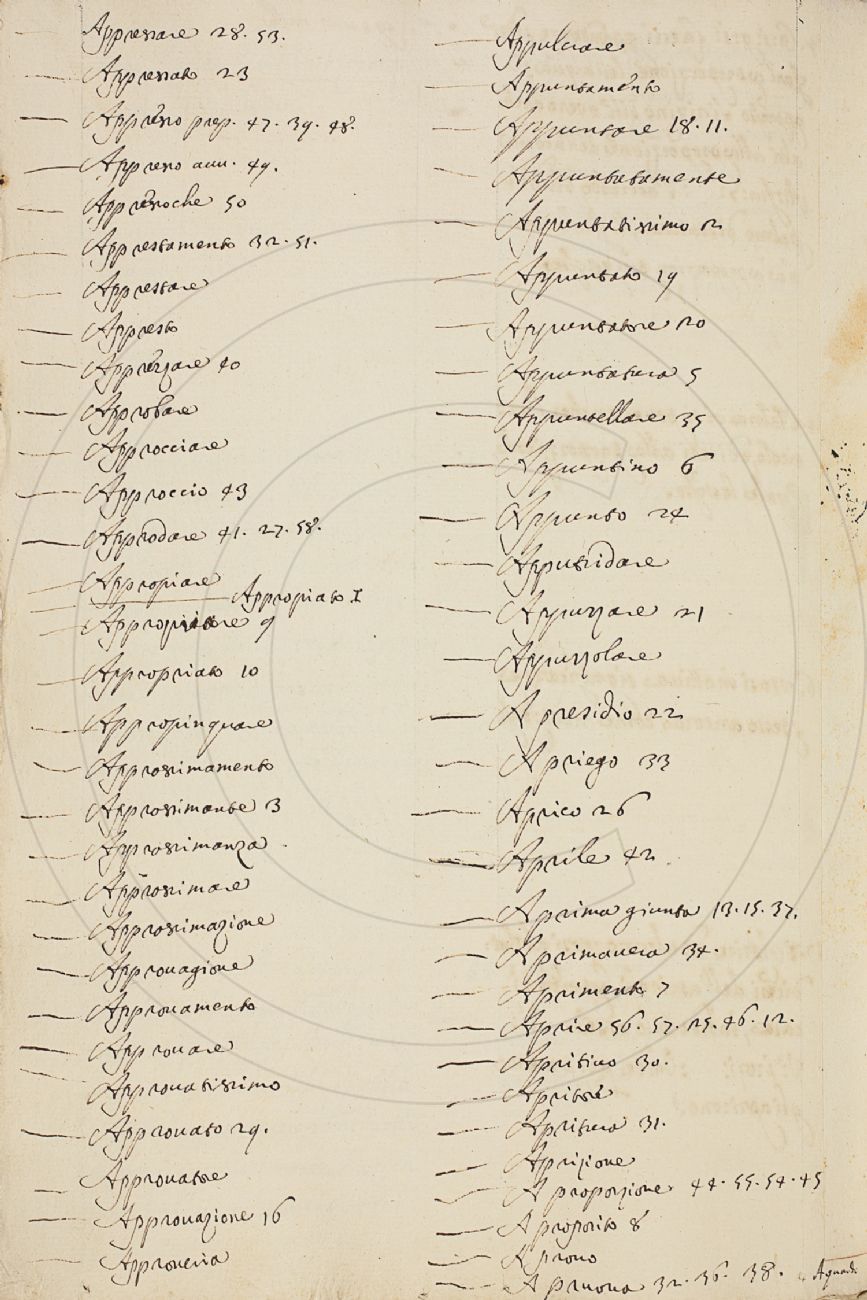 Appressare 28. 53.
Appressato 23
Appresso prep. 47. 39. 48.
Appresso auu. 49.
Appressoche 50
Apprestamento 32. 51.
Apprestare
Appresto
Apprezzare 40
Approbare
Approcciare
Approccio 43
Approdare 41. 27. 58.
Appropiare
Appropiato I
Appropriare 9
Appropriato 10
Appropinquare
Approssimamento
Approssimante 3
Approssimanza
Approssimare
Approssimazione
Approuagione
Approuamento
Approuare
Approuatissimo
Approuato 29.
Approuatore
Approuazione 16
Appulciare
Appuntamento
Appuntare 18. 11.
Appuntatamente
Appuntatissimo 2
Appuntato 19
Appuntatore 20
Appuntatura 5
Appuntellare 35
Appuntino 6
Appunto 24
Apputridare
Appuzzare 21
Appuzzolare
A presidio 22
A priego 33
Aprico 26
Aprile 42
A prima giunta 13. 15. 37.
A primauera 34.
Aprimento 7
Aprire 56. 57. 25. 46. 12.
Apritiuo 30.
Apritore
Apritura 31.
Aprizione
A proporzione 44. 55. 54. 45
A proposito 8
A pruoua 32. 36. 38.